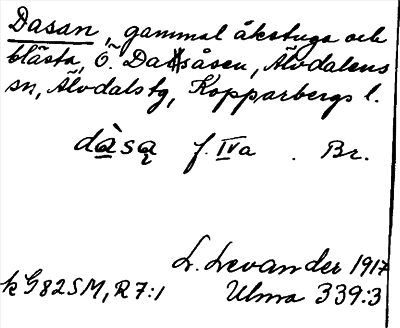 Dasan, gammal åkstuga och
blästa, Ö. Dasåsen, Älvdalens
sn, Älvdals tg, Kopparbergs l.
dàsą f. IVa . Br.
L. Levander 1917
k G82SM, R7:1 Ulma 339:3